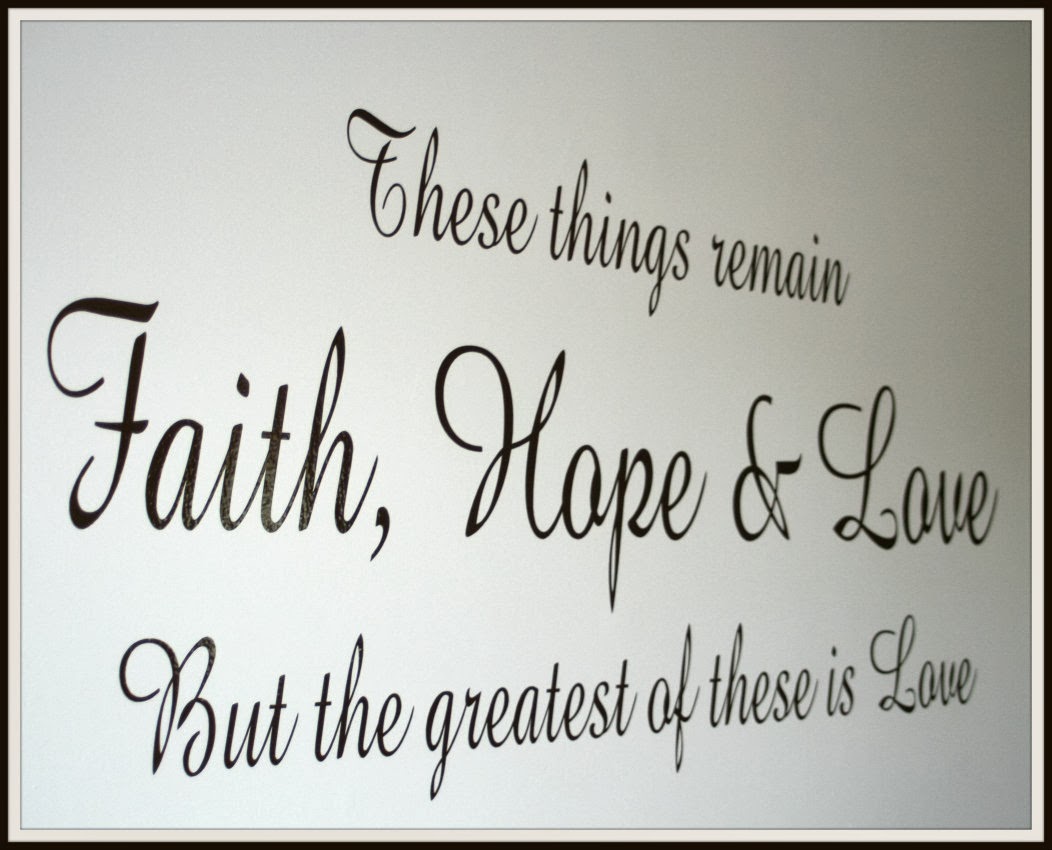 These things remain
Faith, Hope & Love
But the greatest of these is Love